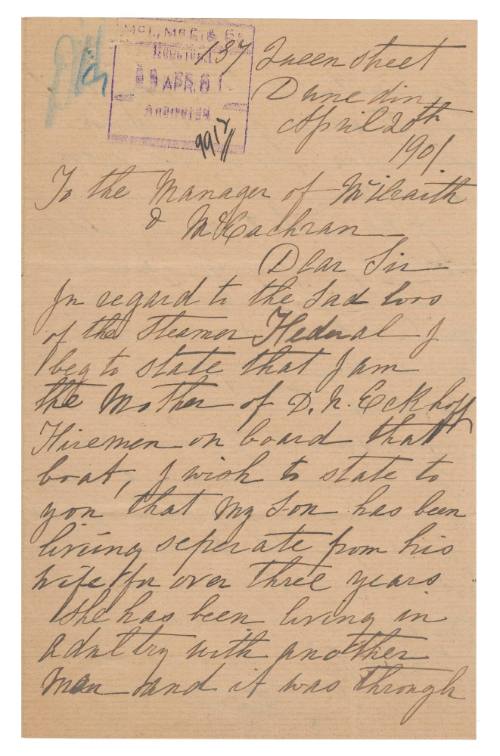 McI., McE. & Co.
APR. 01
9917
137 Queen Street
Dunedin
April 20th
1901
To the Manager of McIlraith
& McEachran
Dear Sir
In regard to the sad loss
of the Steamer Federal I
beg to state that I am
the Mother of D. N. Eckhoff
Firemen on board that
boat, I wish to state to
you that my Son has been
living seperate from his
wife for over three years
She has been living in
adultry with another
man and it was through